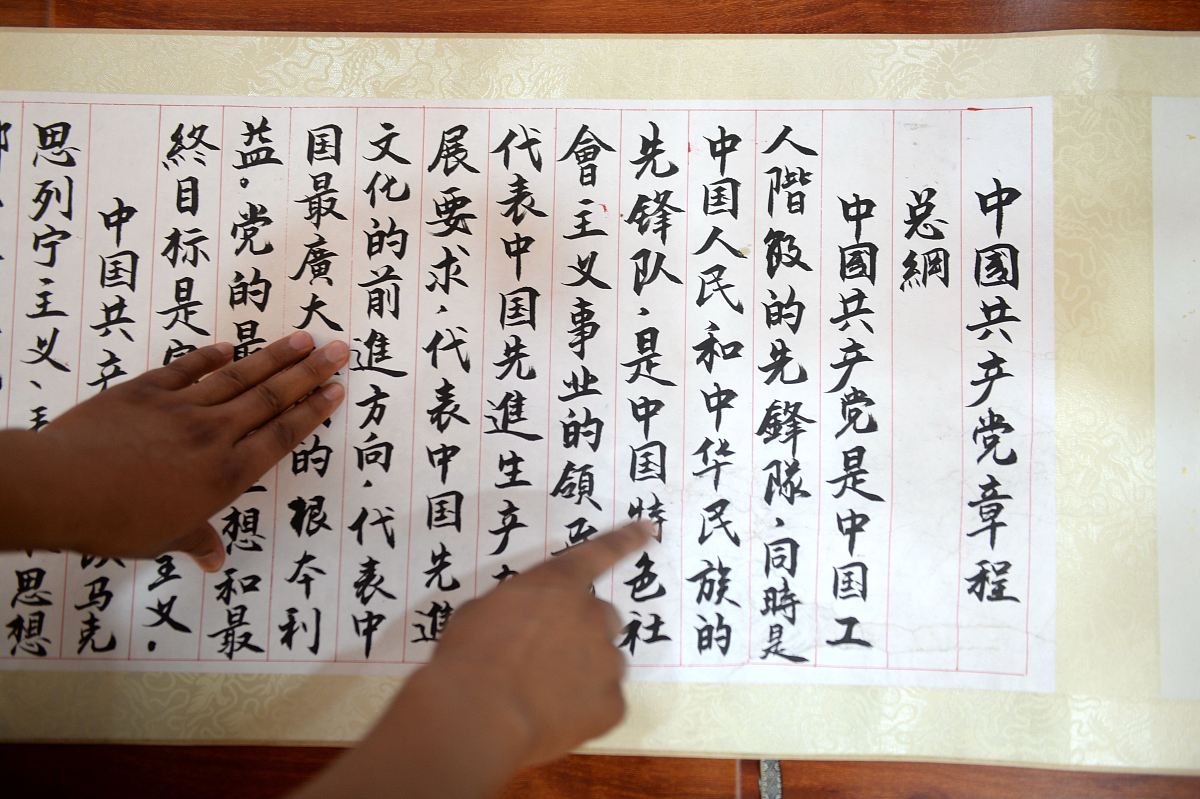 中國共产党章程
总綱
中國共产党是中国工
人階级的先鋒隊，同時是
中国人民和中华民族的
先锋队，是中国特色社
會主义事业的領
代表中国先進生产
展要求，代表中国先進
文化的前進方向，代表中
国最廣大的根本利
益。党的最想和最
終目标是主义。
中国共产马克
思列宁主义、思想